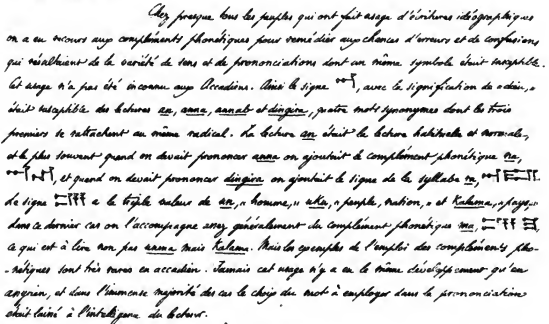 Chez presque tous les peuples qui ont fait usage d'écritures idéographiques
on a eu recours aux compléments phonétiques pour remédier aux chances d'erreurs et de confusions
qui résultaient de la variété de sens et de prononciations dont un même symbole était susceptible.
Cet usage n'a pas été inconnu aux Accadiens. Ainsi le signe 𒀭, avec la signification de « dieu, »
était susceptible des lectures an, anna, annab et dingira, quatre mots synonymes dont les trois
premiers se rattachent au même radical. La lecture an était la lecture habituelle et normale,
et le plus souvent quand on devait prononcer anna on ajoutait le complément phonétique na,
𒀭𒈾, et quand on devait prononcer dingira on ajoutait le signe de la syllabe ra, 𒀭𒊏.
Le signe 𒌦 a le triple valeurs de un, « homme, » uku, « peuple, nation, » et Kalama, « pays, »
dans ce dernier cas on l'accompagne assez généralement du complément phonétique ma, 𒌦𒈠
ce qui est à lire non pas unma mais Kalama. Mais les exemples de l'emploi des compléments pho-
-nétiques sont très rares en accadien. Jamais cet usage n'y a eu le même développement qu'en
assyrien, et dans l'immense majorité des cas le choix du mot à employer dans la prononciation
était laissé à l'intelligence du lecteur.